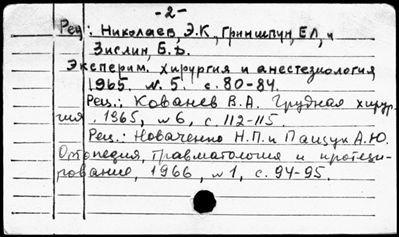 -2-
Рец.: Николаев, Э.К, Гриншпун, Е.Л, и
Зислин, Б.Д.
Эксперим. хирургия и анестезиология
1965. №5. с. 80-84.
Рец.: Кованев В.А. Грудная хирур-
гия, 1965, №6, с. 112-115
Рец.: Новаченко Н.П. и Пащук А.Ю.
Ортопедия, травматология и протези-
рование, 1966, №1, с. 94-95.